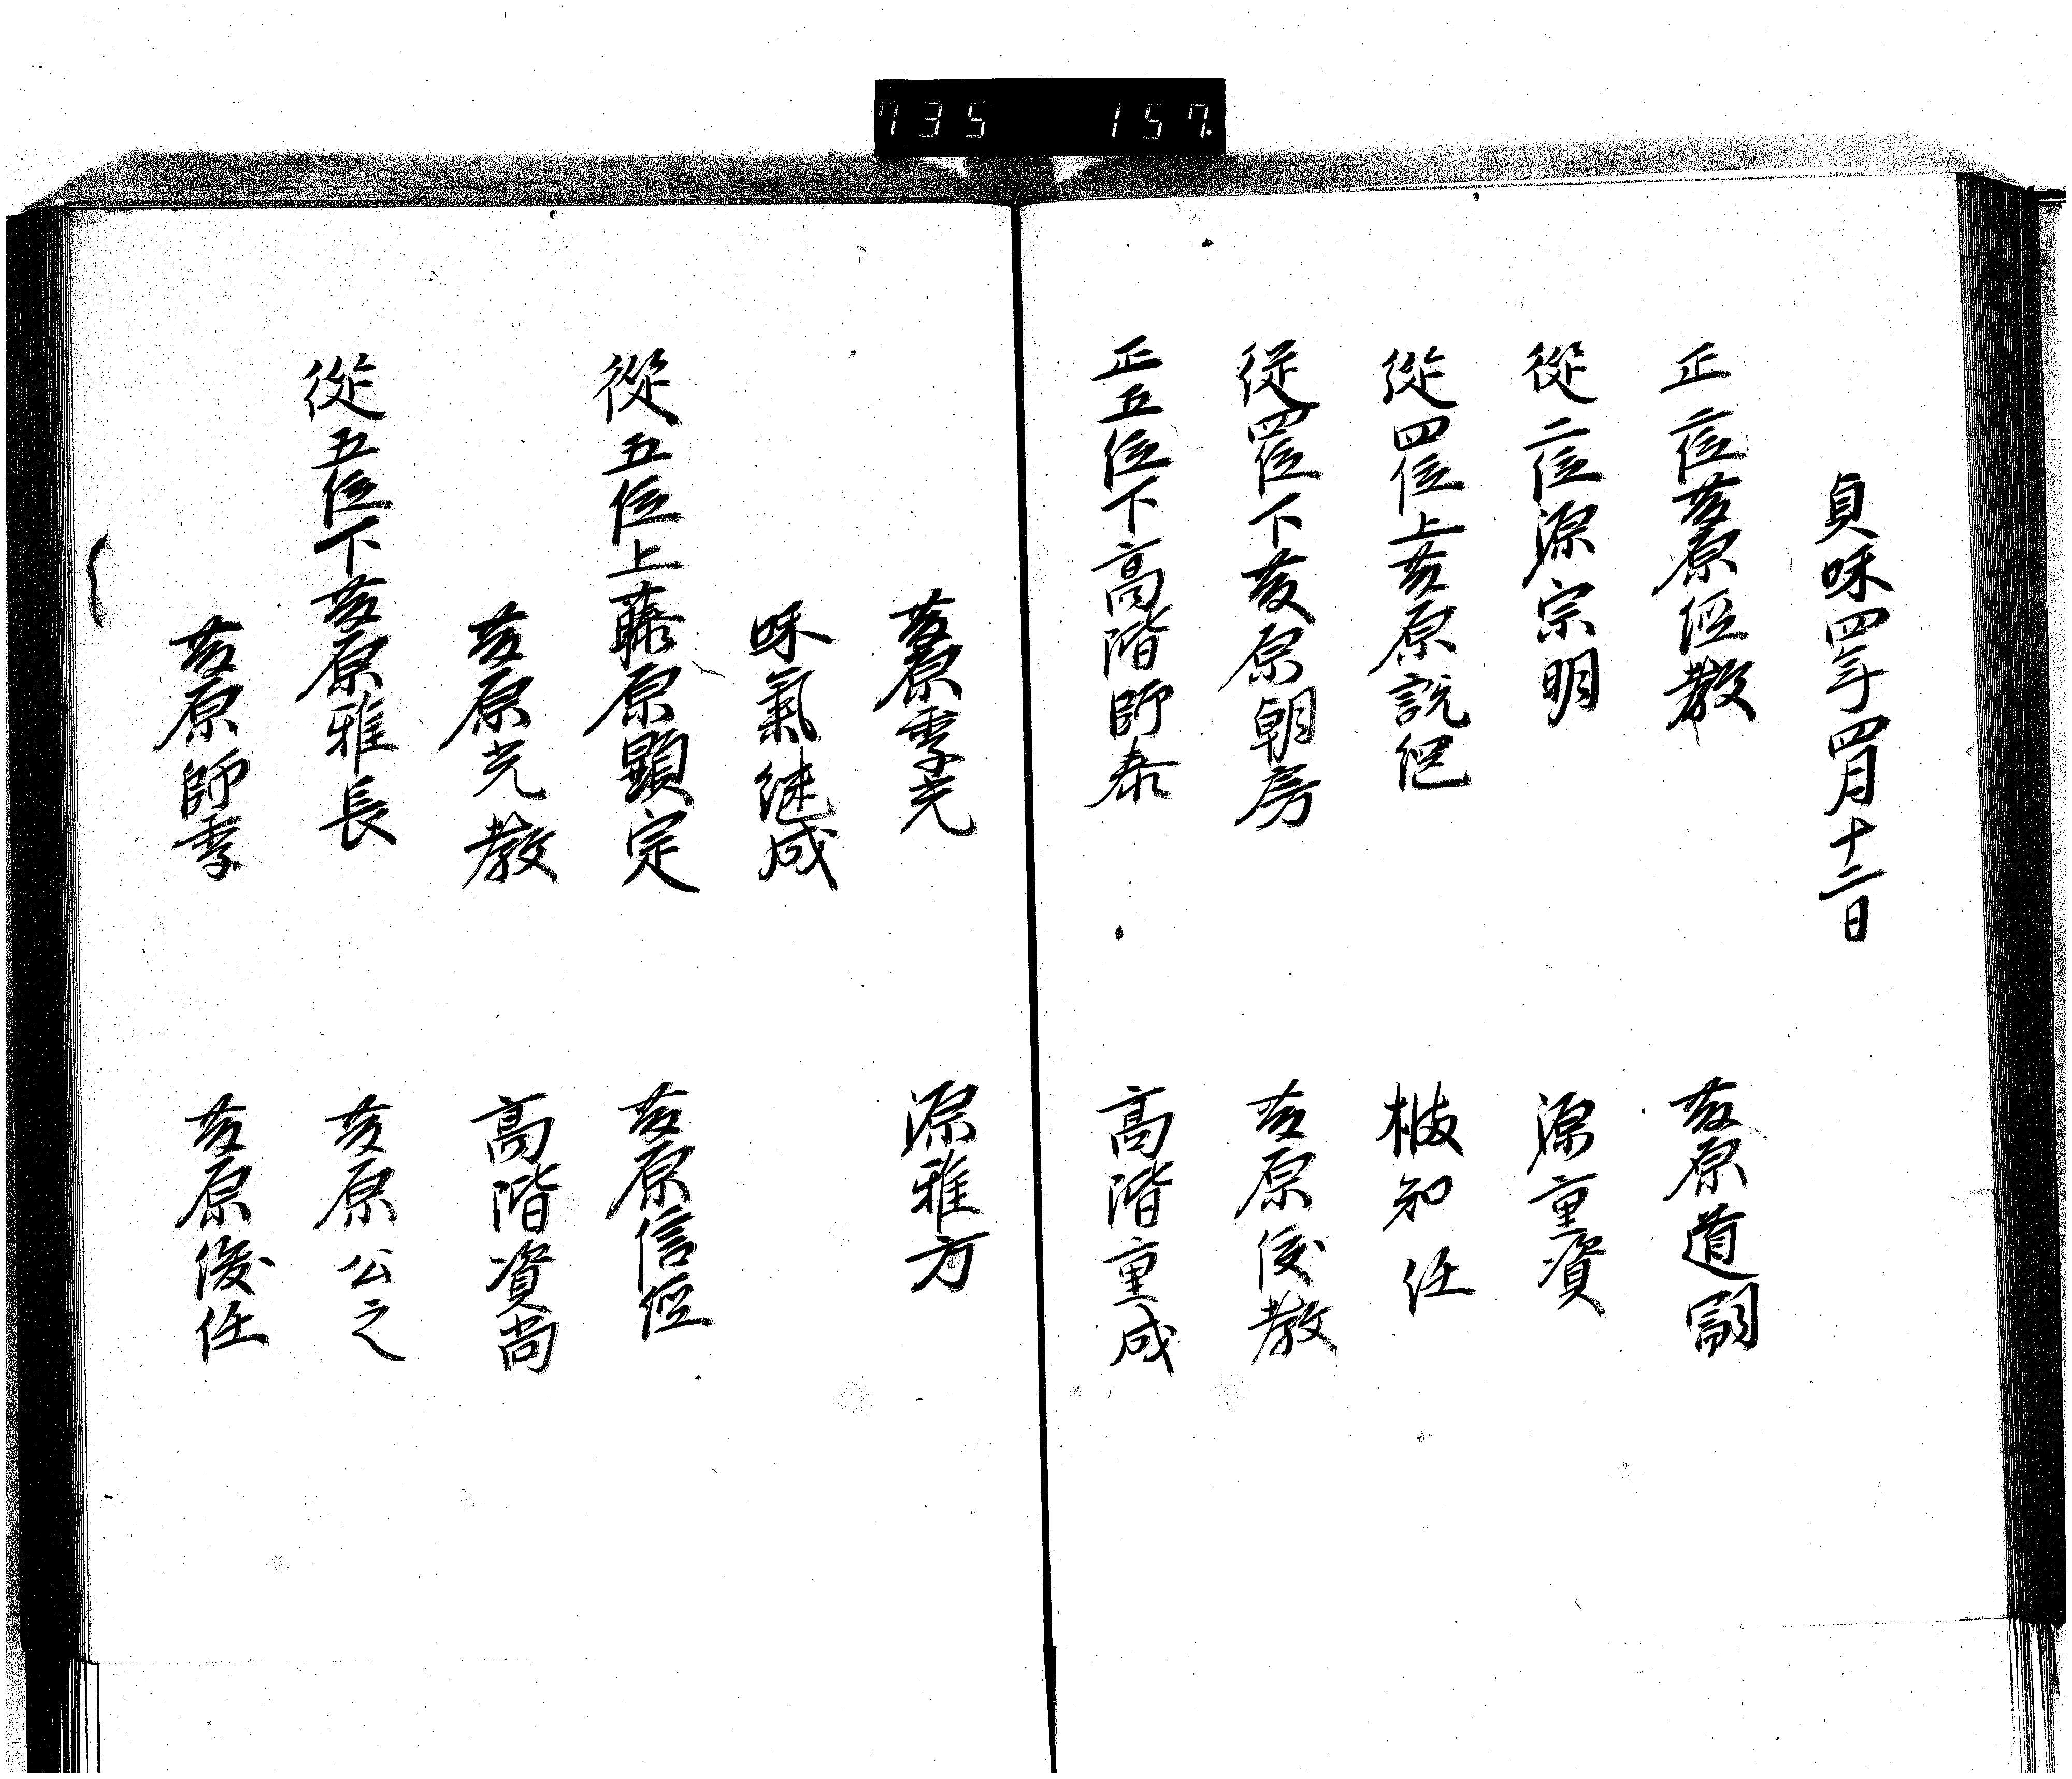 735 157
貞咊四年四月十二日
正二位藤原経教 藤原道嗣
從二位源宗明 源重資
從四位上藤原説 橘知任
従四位下藤原朝房 藤原俊教
正五位下高階師泰 高階重成
藤原季光 源雅方
咊氣継成
從五位上藤原顕定 藤原信経
藤原光教 高階資尚
從五位下藤原雅長 藤原公之
藤原師季 藤原俊任